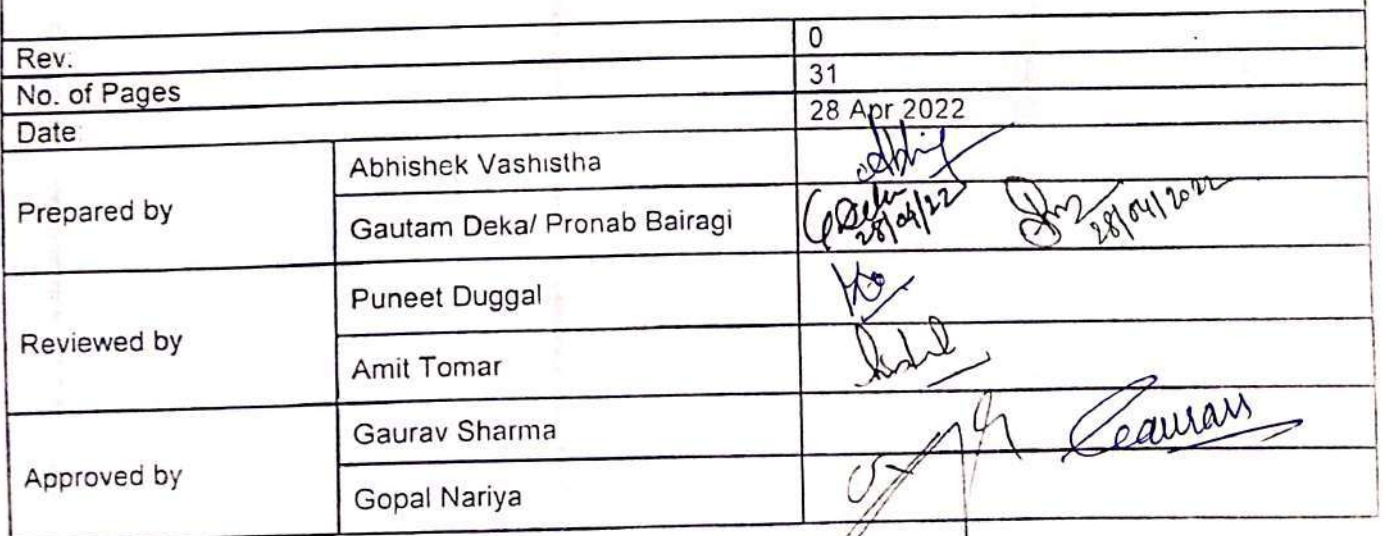 Rev: 0
No. of Pages 31
Date: 28 Apr 2022
Prepared by
Abhishek Vashistha
Gautam Deka/ Pronab Bairagi GDeka
28/04/22 28/04/2022
Reviewed by
Puneet Duggal
Amit Tomar
Approved by
Gaurav Sharma Gaurav
Gopal Nariya